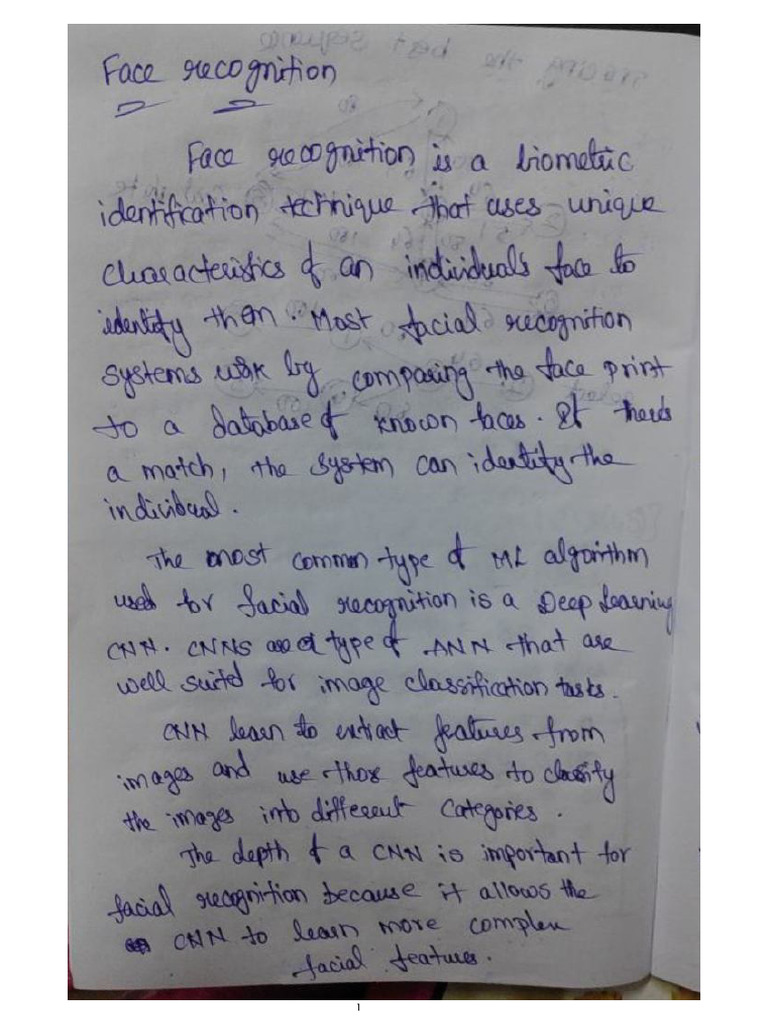 Face recognition
Face recognition is a biometric
identification technique that uses unique
characteristics of an individuals face to
identify them. Most facial recognition
systems work by comparing the face print
to a database of known faces. If there's
a match, the system can identify the
individual.
The most common type of ML algorithm
used for facial recognition is a Deep Learning
CNN. CNNs are a type of ANN that are
well suited for image classification tasks.
CNN learn to extract features from
images and use those features to classify
the images into different categories.
The depth of a CNN is important for
facial recognition because it allows the
CNN to learn more complex
facial features.
1